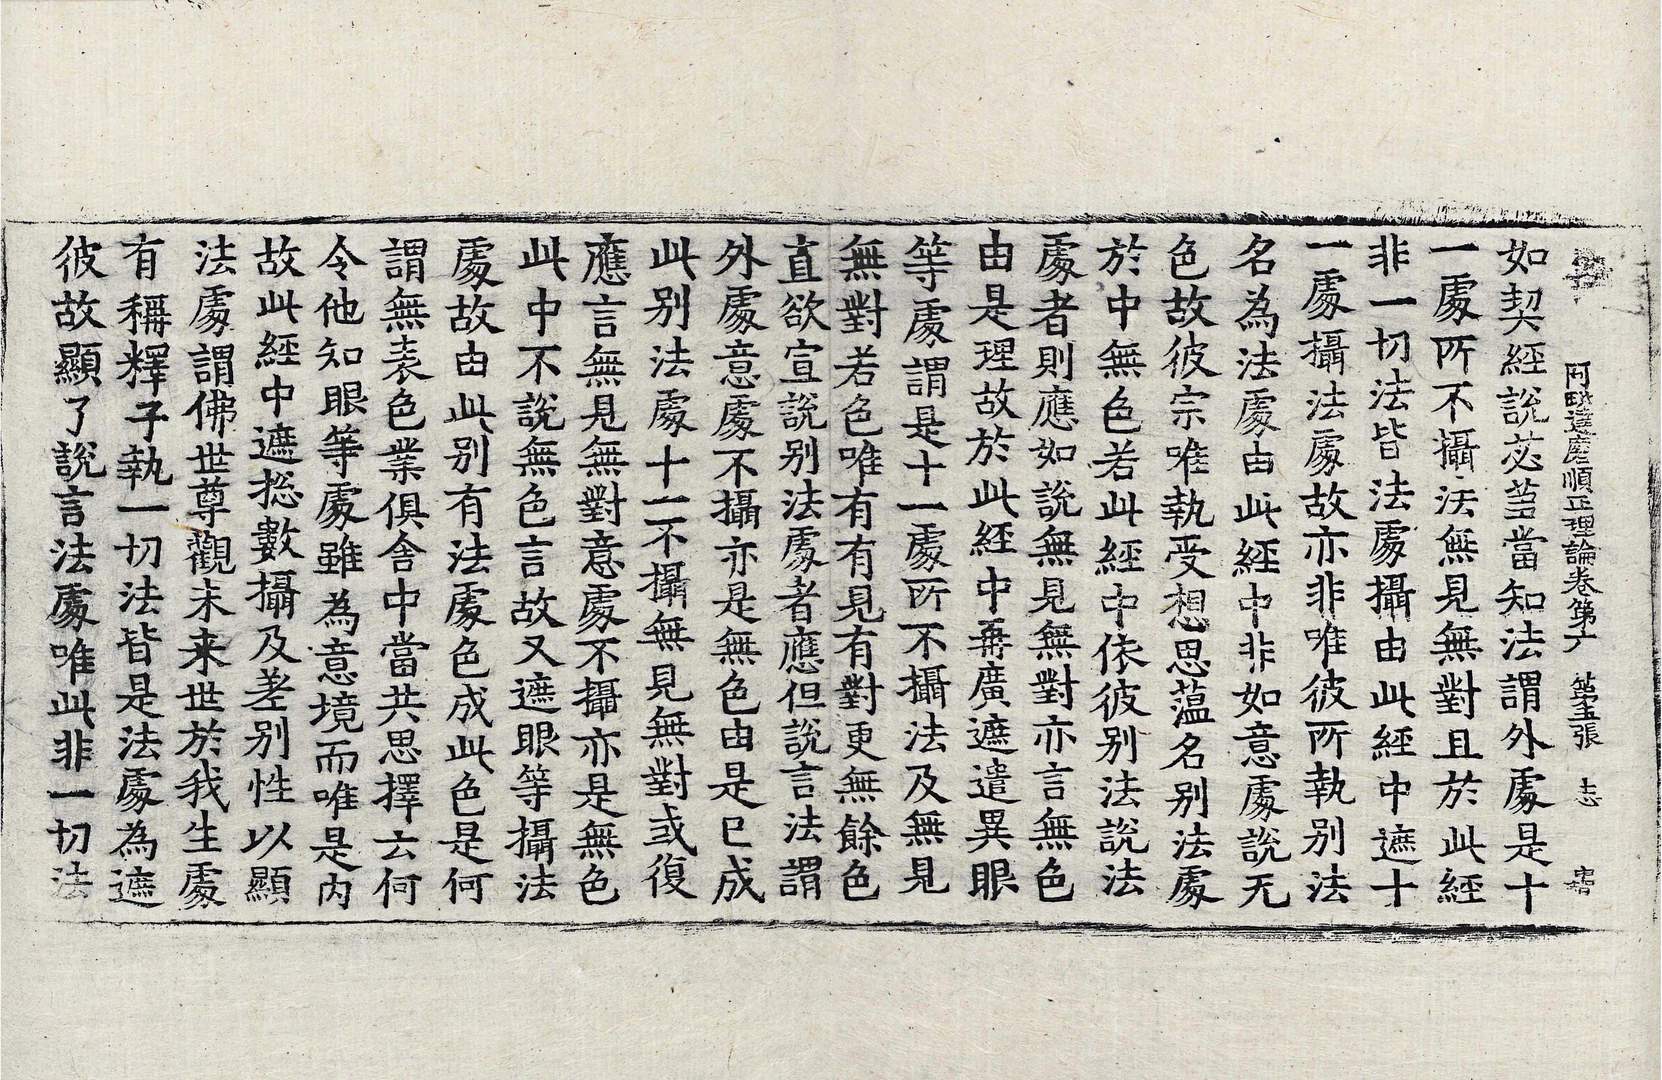 阿毗達磨順正理論卷第六 第五張 志
如契經說苾芻當知法謂外處是十
一處所不攝法無見無對且於此經
非一切法皆法處攝由此經中遮十
一處攝法處故亦非唯彼所執別法
名為法處由此經中非如意處說无
色故彼宗唯執受想思蘊名別法處
於中無色若此經中依彼別法說法
處者則應如說無見無對亦言無色
由是理故於此經中再廣遮遣異眼
等處謂是十一處所不攝法及無見
無對若色唯有有見有對更無餘色
直欲宣說別法處者應但說言法謂
外處意處不攝亦是無色由是已成
此別法處十一不攝無見無對或復
應言無見無對意處不攝亦是無色
此中不說無色言故又遮眼等攝法
處故由此別有法處色成此色是何
謂無表色業俱舍中當共思擇云何
令他知眼等處雖為意境而唯是內
故此經中遮捴數攝及差別性以顯
法處謂佛世尊觀未来世於我生處
有稱釋子執一切法皆是法處為遮
彼故顯了說言法處唯此非一切法